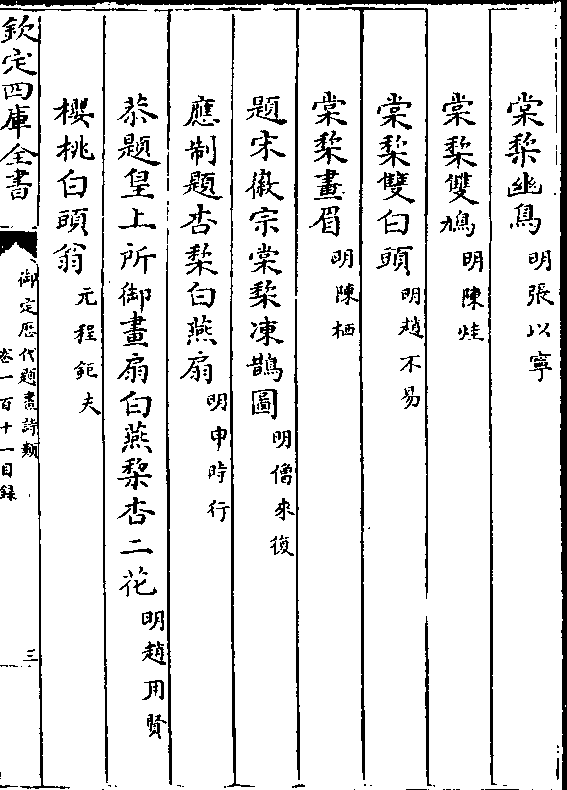 棠棃幽鳥 明張以寧
棠棃雙鳩 明陳烓
棠棃雙白頭 明趙不易
棠棃畫眉 明陳栖
題宋徽宗棠棃凍鵲圖 明僧來復
應制題杏棃白燕扇 明申時行
恭題皇上所御畫扇白燕棃杏二花 明趙用賢
櫻桃白頭翁 元程鉅夫
欽定四庫全書
御定歴代題畫詩類
卷一百十一目録
三